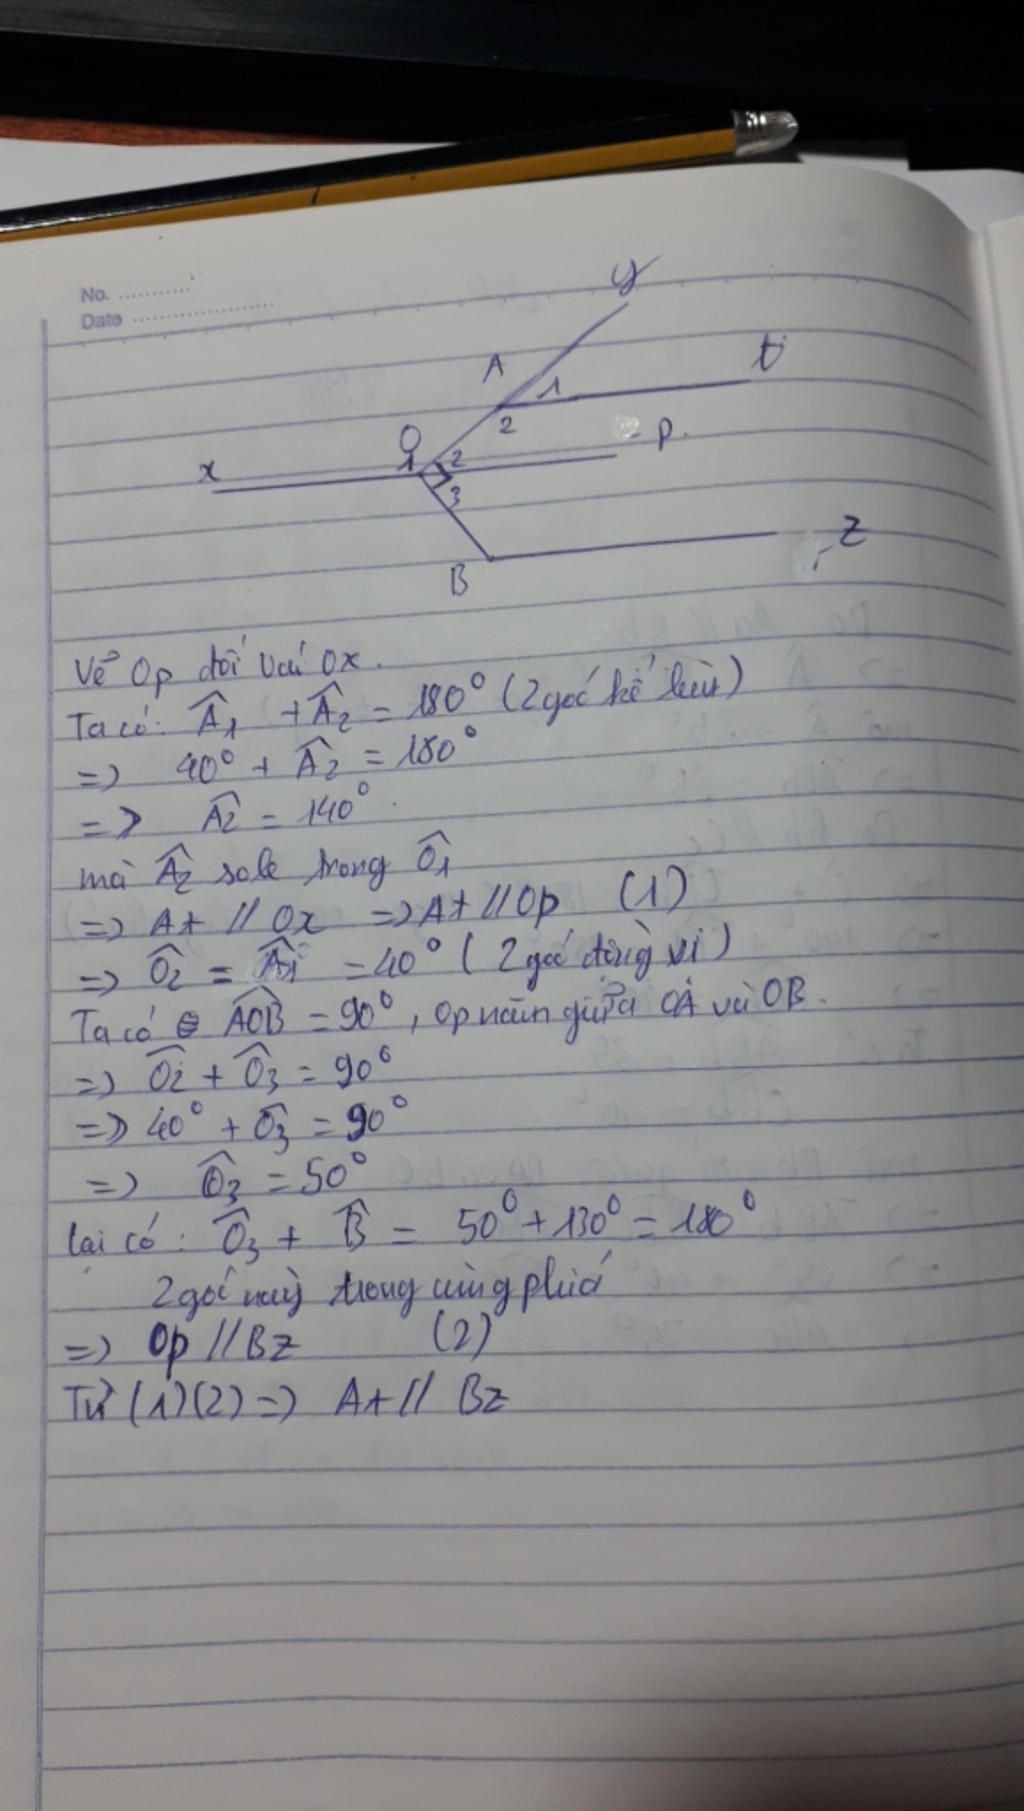 No. ............
Date ......................
y
A
1
t
2
O
P.
x
1
2
3
B
Z
Vẽ Op đối với Ox.
Ta có: Â1 + Â2 = 180° (2 góc kề bù)
=> 40° + Â2 = 180°
=> Â2 = 140°.
mà Â2 sole trong Ô1
=> At // Ox => At // Op (1)
=> Ô2 = Â1 = 40° (2 góc đồng vị)
Ta có AOB̂ = 90°, Op nằm giữa OA và OB.
=> Ô2 + Ô3 = 90°
=> 40° + Ô3 = 90°
=> Ô3 = 50°
lại có: Ô3 + B̂ = 50° + 130° = 180°
2 góc này trong cùng phía
=> Op // Bz (2)
Từ (1)(2) => At // Bz